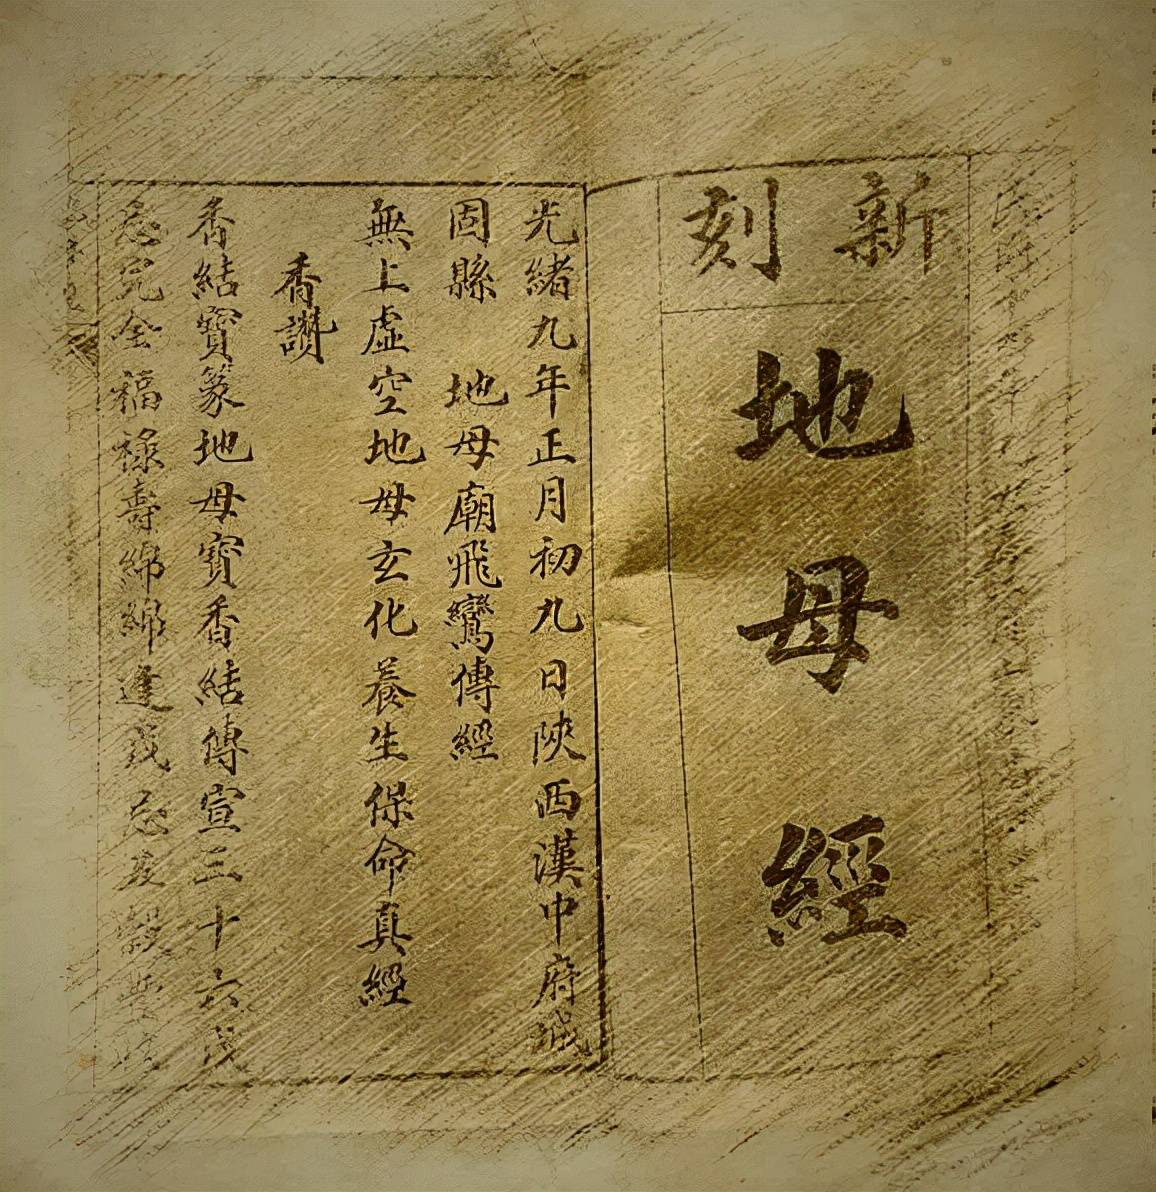 新刻
地母經
光緒九年正月初九日陝西漢中府城
固縣 地母廟飛鸞傳經
無上虛空地母玄化養生保命真經
香讚
香結寶篆地母寶香結傳宣三十六戊
完全福祿壽綿綿逢戊